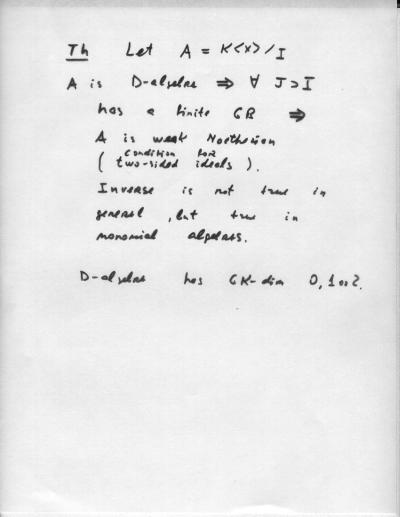 Th Let A = K<x>/I
A is D-algebra ⇒ ∀ J⊃I
has a finite GB ⇒
A is weak Noetherian
( condition for
two-sided ideals ).
Inverse is not true in
general, but true in
monomial algebras.
D-algebra has GK-dim 0, 1 or 2.